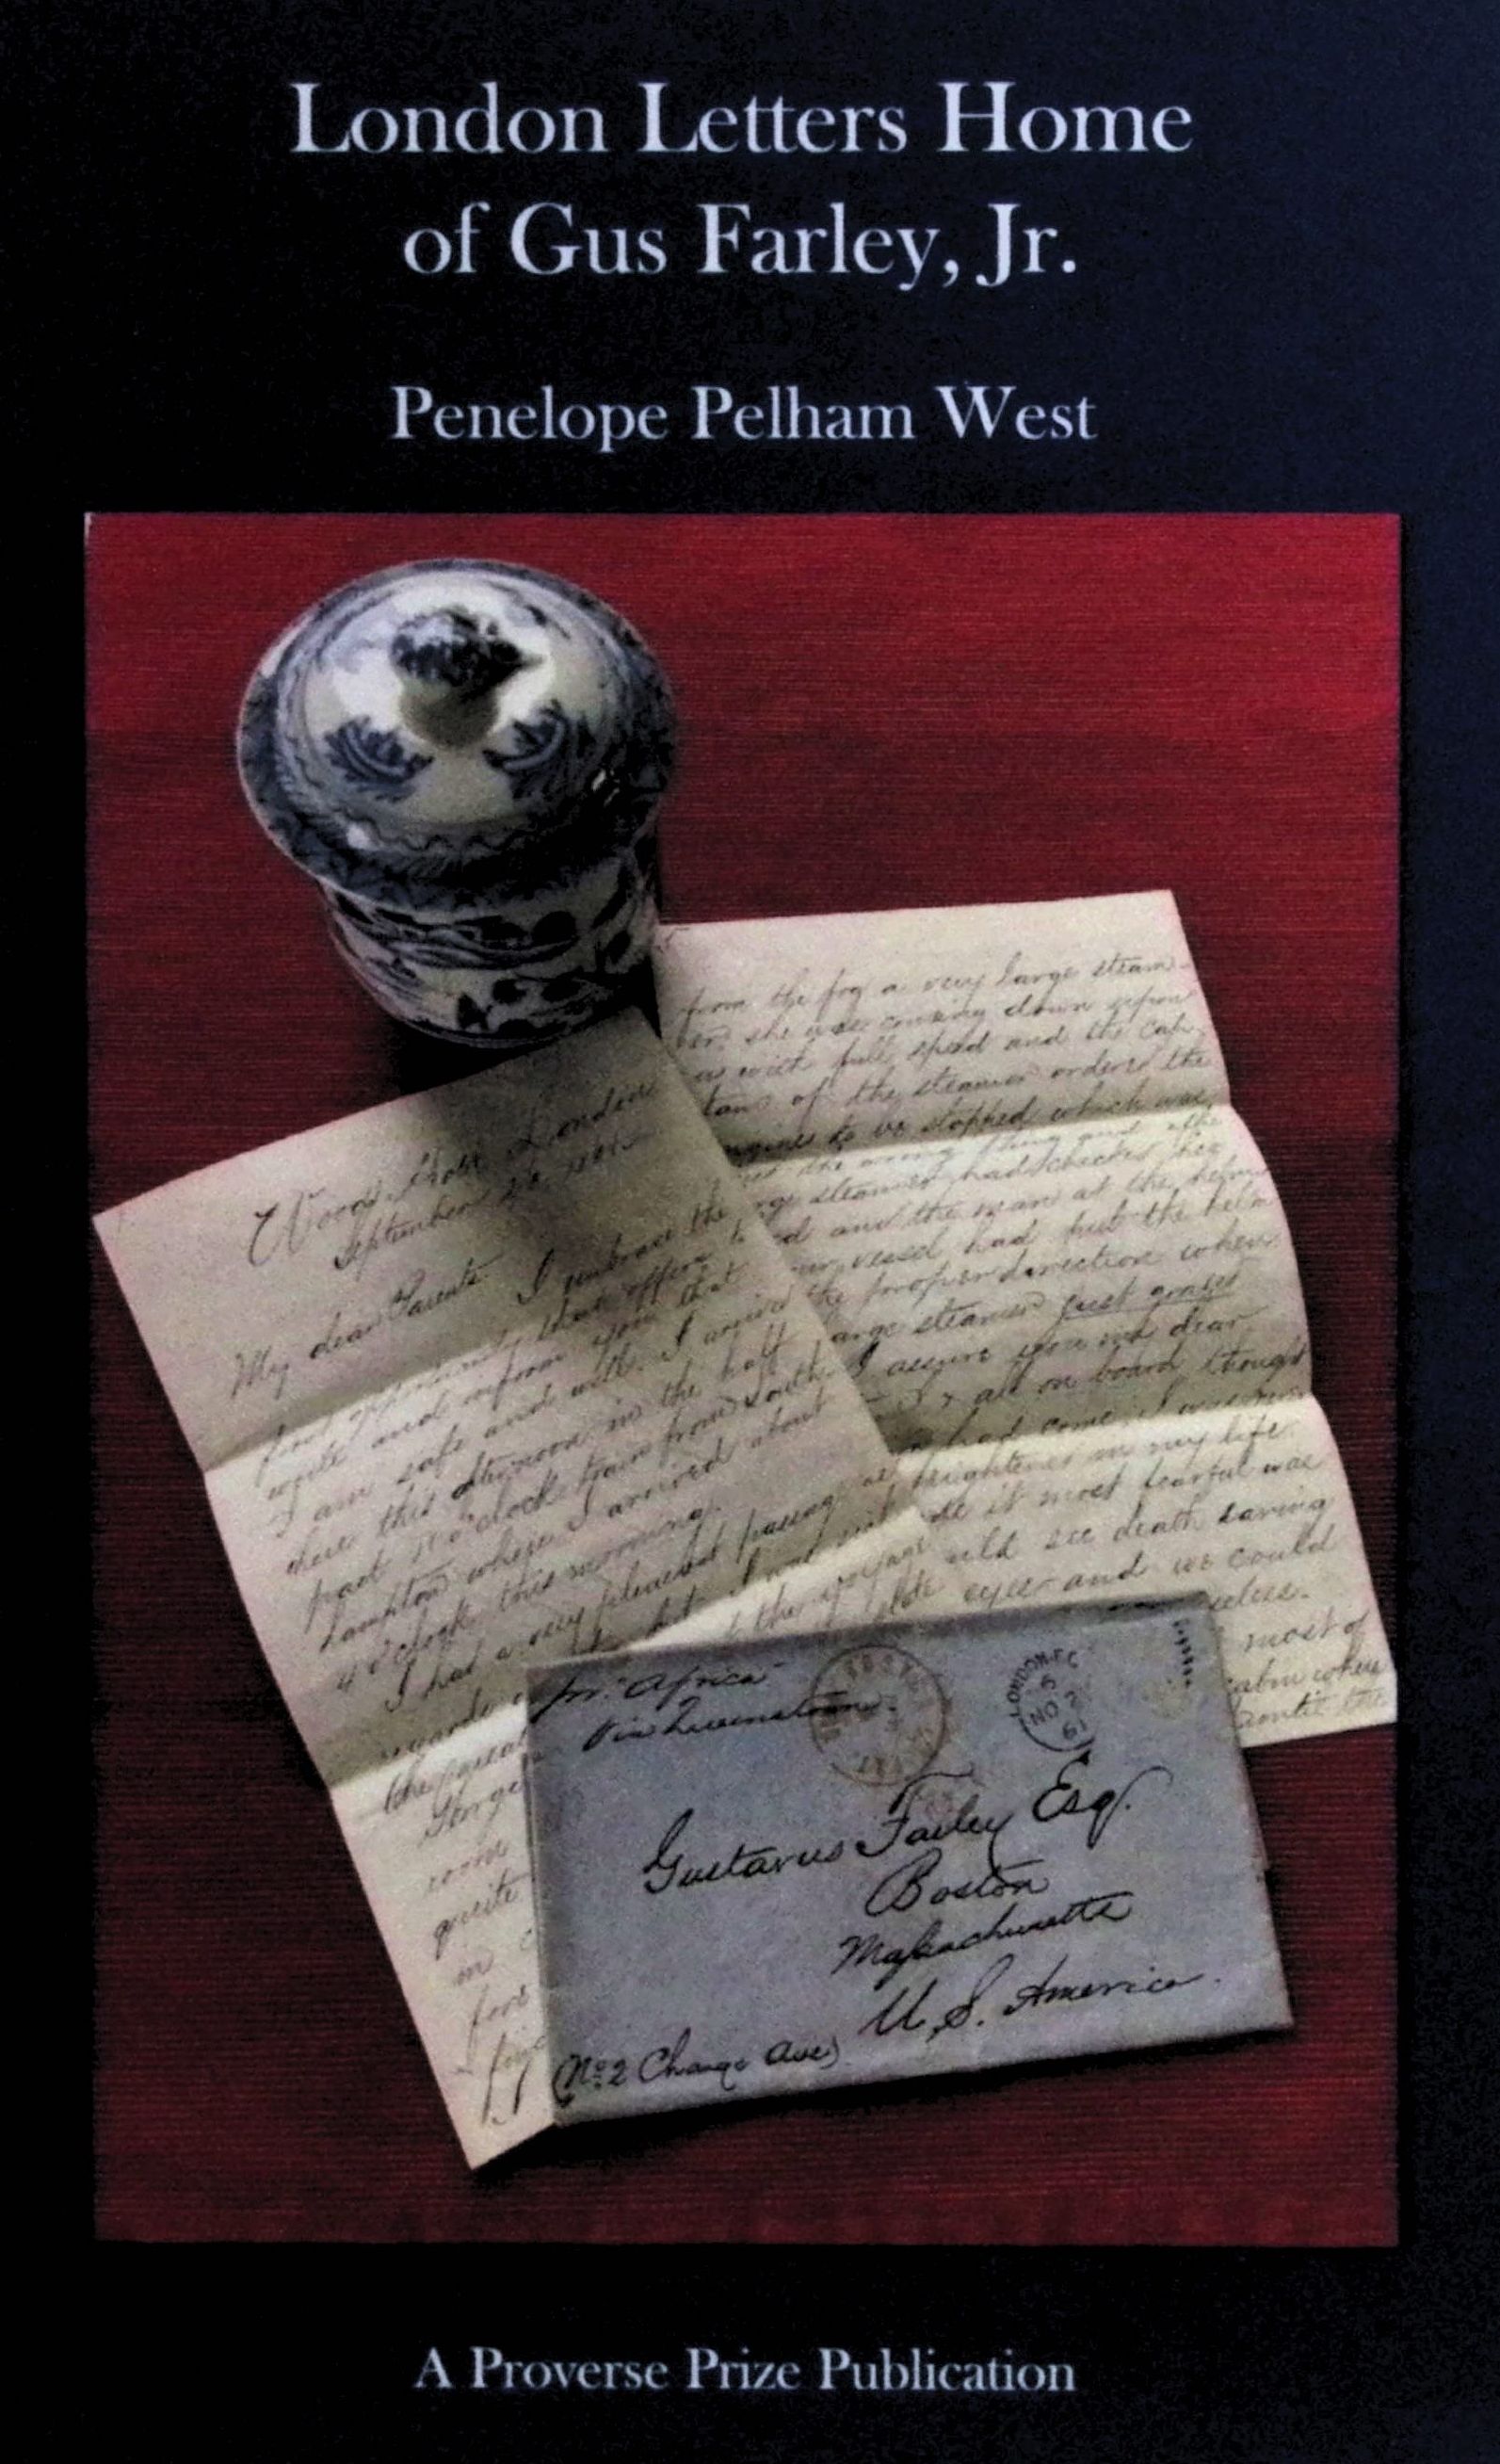 London Letters Home
of Gus Farley, Jr.
Penelope Pelham West
from the fog a very large steam-
she was coming down upon
with full speed and the cap-
tain of the steamer ordered the
engines to be stopped which was
the wrong thing and the
large steamer had checked her
and the man at the helm
our vessel had put the helm
the proper direction when
large steamer just grazed
I assure you my dear
all on board thought
had come. I was never
frightened in my life
it most fearful was
see death staring
eyes and we could
most of
calm when
until the
Wood Street London
September
My dear Parents
I embrace the
first opportunity that offers to
write and inform you that
I am safe and well. I arrived
here this afternoon in the half
past 11 o'clock train from South-
hampton where I arrived about
4 o'clock this morning.
I had a very pleasant passage as
regards
the passen
George
room
quite
in
for
pr. Africa
Via Queenstown.
LONDON-E.C
5
NO 2
61
Gustavus Farley Esq.
Boston
Massachusetts
U.S. America.
(No. 2 Change Ave)
A Proverse Prize Publication